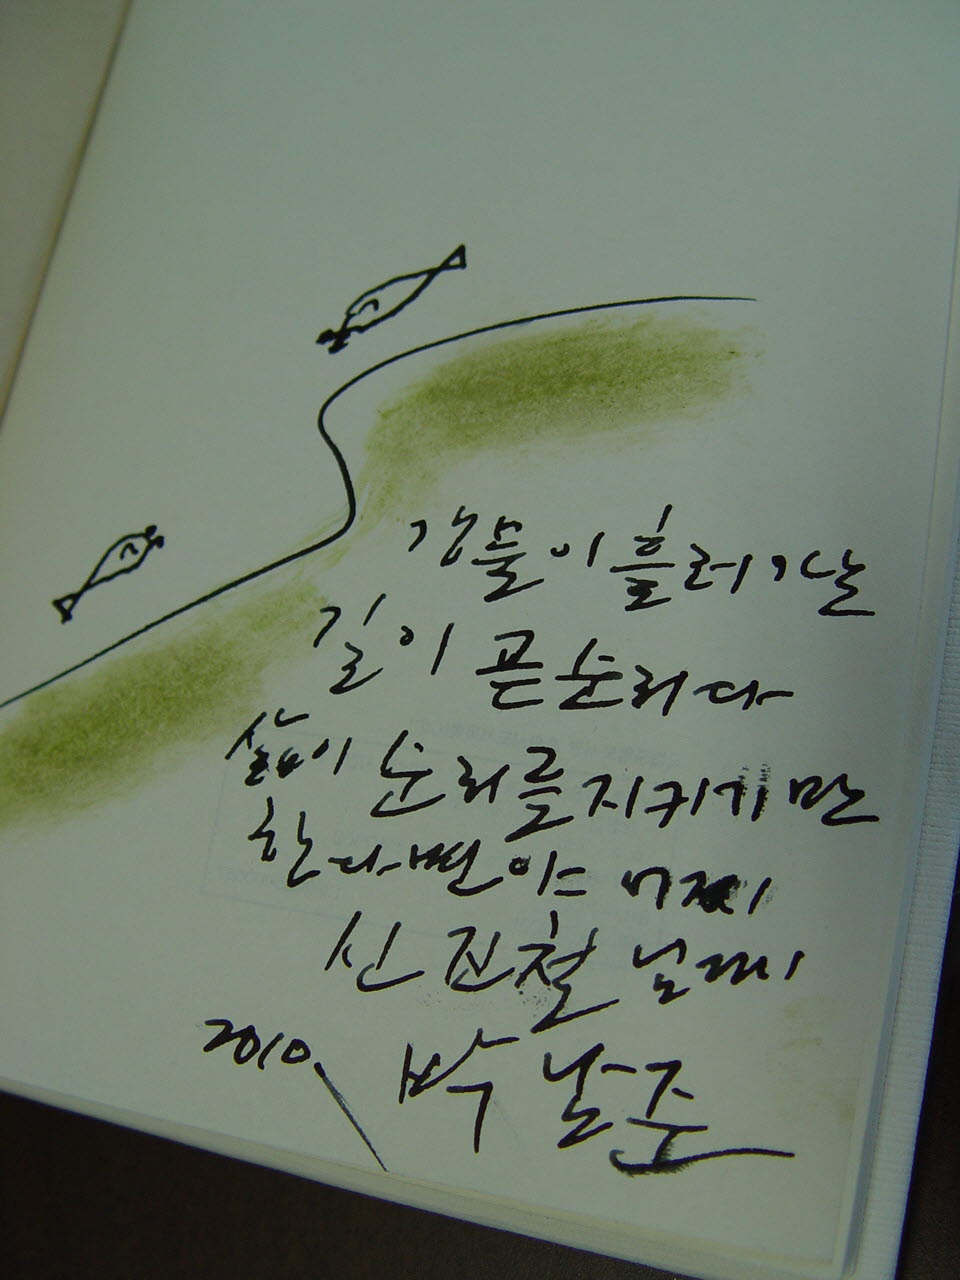 강물이 흘러가는
길이 곧 순리다
삶이 순리를 지키기만
한다면야
신진철 님께
2010. 박남준